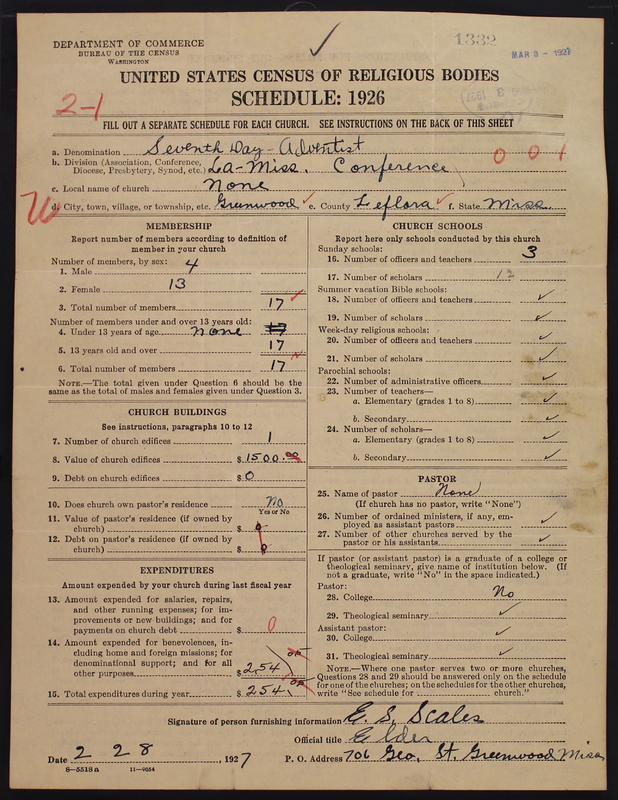 DEPARTMENT OF COMMERCE
BUREAU OF THE CENSUS
WASHINGTON
1332
MAR 3 - 1927
UNITED STATES CENSUS OF RELIGIOUS BODIES
SCHEDULE: 1926
2-1
FILL OUT A SEPARATE SCHEDULE FOR EACH CHURCH. SEE INSTRUCTIONS ON THE BACK OF THIS SHEET
a. Denomination Seventh Day-Adventist
b. Division (Association, Conference, Diocese, Presbytery, Synod, etc.) La-Miss. Conference
0 0 1
c. Local name of church None
d. City, town, village, or township, etc. Greenwood e. County Leflora f. State Miss.
MEMBERSHIP
Report number of members according to definition of
member in your church
Number of members, by sex:
1. Male 4
2. Female 13
3. Total number of members 17
Number of members under and over 13 years old:
4. Under 13 years of age none 17
5. 13 years old and over 17
6. Total number of members 17
NOTE.—The total given under Question 6 should be
same as the total of males and females given under Question 3.
CHURCH BUILDINGS
See instructions, paragraphs 10 to 12
7. Number of church edifices 1
8. Value of church edifices $ 1500.00
9. Debt on church edifices $ 0
10. Does church own pastor's residence No
Yes or No
11. Value of pastor's residence (if owned by
church) $ 0
12. Debt on pastor's residence (if owned by
church) $ 0
EXPENDITURES
Amount expended by your church during last fiscal year
13. Amount expended for salaries, repairs,
and other running expenses; for im-
provements or new buildings; and for
payments on church debt $ 0
14. Amount expended for benevolences, in-
cluding home and foreign missions; for
denominational support; and for all
other purposes $ 254
15. Total expenditures during year $ 254
CHURCH SCHOOLS
Report here only schools conducted by this church
Sunday schools:
16. Number of officers and teachers 3
17. Number of scholars 12
Summer vacation Bible schools:
18. Number of officers and teachers
19. Number of scholars
Week-day religious schools:
20. Number of officers and teachers
21. Number of scholars
Parochial schools:
22. Number of administrative officers
23. Number of teachers—
a. Elementary (grades 1 to 8)
b. Secondary
24. Number of scholars—
a. Elementary (grades 1 to 8)
b. Secondary
PASTOR
25. Name of pastor None
(If church has no pastor, write "None")
26. Number of ordained ministers, if any, em-
ployed as assistant pastors
27. Number of other churches served by the
pastor or his assistants
If pastor (or assistant pastor) is a graduate of a college or
theological seminary, give name of institution below. (If
not a graduate, write "No" in the space indicated.)
Pastor:
28. College No
29. Theological seminary
Assistant pastor:
30. College
31. Theological seminary
NOTE.—Where one pastor serves two or more churches,
Questions 28 and 29 should be answered only on the schedule
for one of the churches; on the schedules for the other churches,
write "See schedule for church."
Signature of person furnishing information E. S. Scales
Official title Elder
Date 2 28, 1927 P. O. Address 706 Geo. St. Greenwood Miss
8-5518a 11-9054